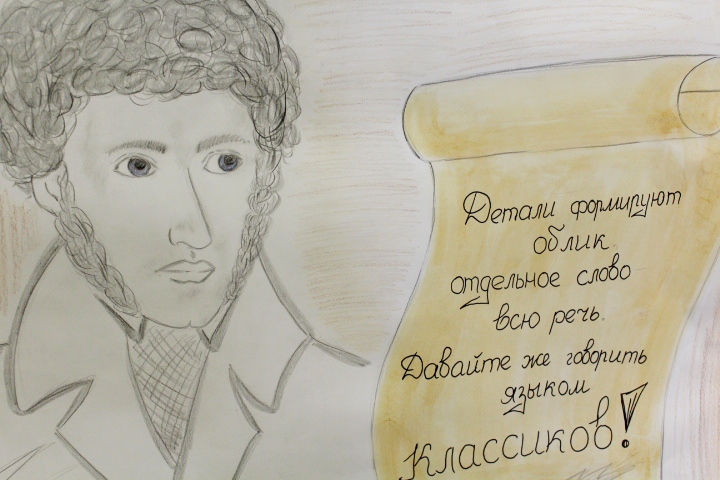 Детали формируют
облик
отдельное слово
всю речь.
Давайте же говорить
языком
Классиков!